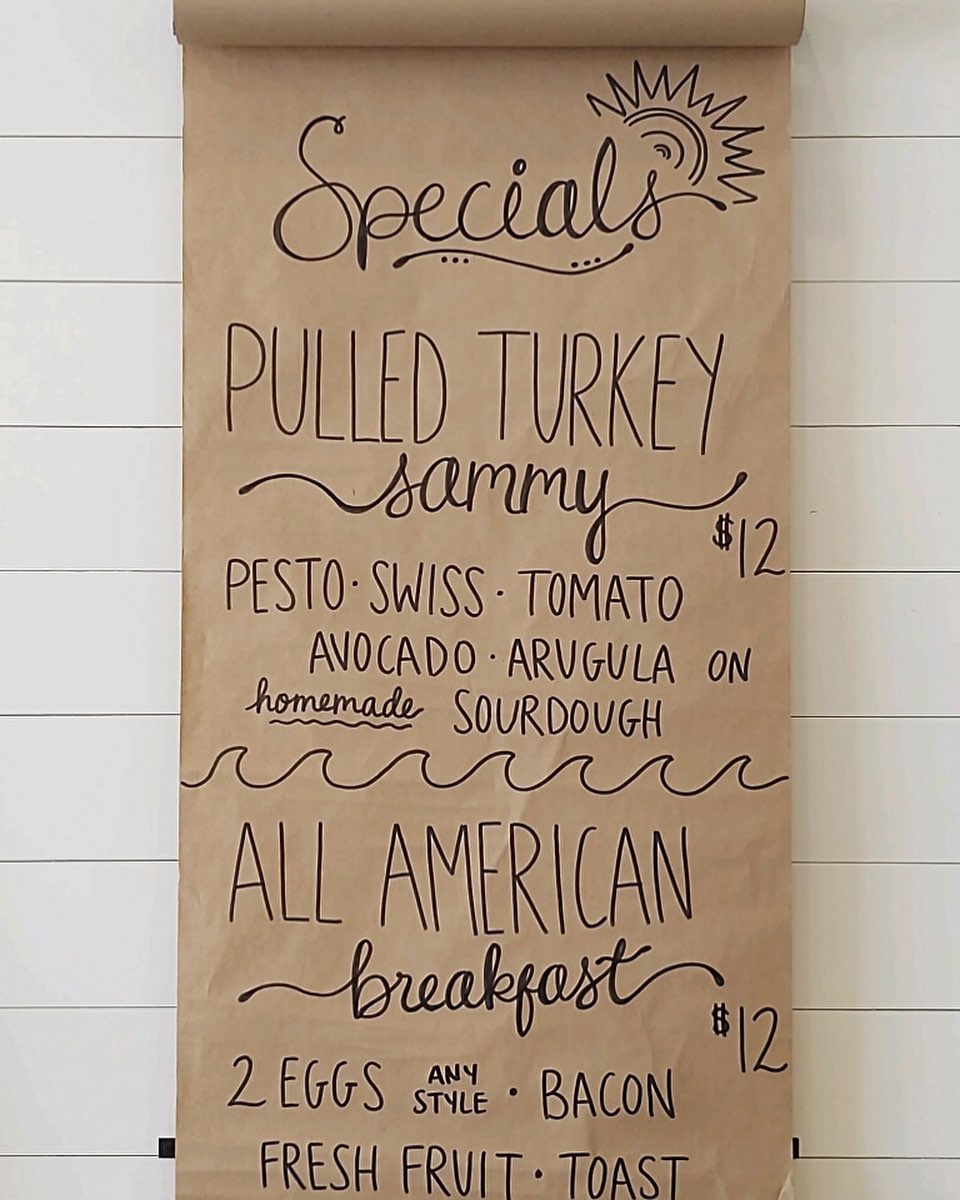 Specials
PULLED TURKEY
sammy
$12
PESTO · SWISS · TOMATO
AVOCADO · ARUGULA ON
homemade SOURDOUGH
ALL AMERICAN
breakfast
$12
2 EGGS ANY STYLE · BACON
FRESH FRUIT · TOAST